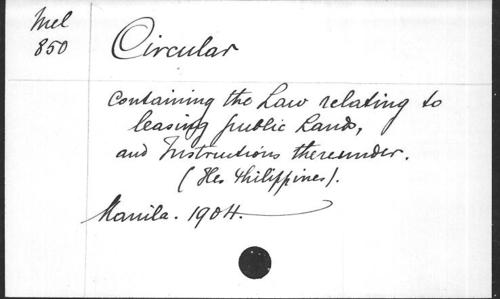 Mel
850
Circular
containing the Law relating to
leasing public Lands,
and Instructions thereunder.
(Iles Philippines).
Manila. 1904.